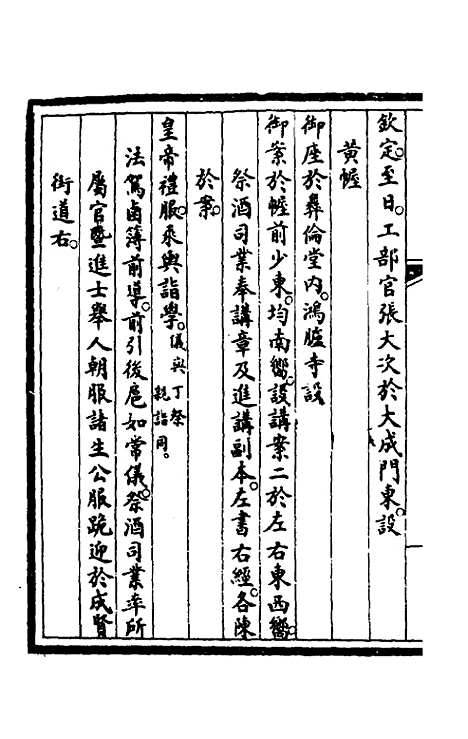 欽定。至日。工部官張大次於大成門東。設
黃幄
御座於彝倫堂內。鴻臚寺設
御案於幄前少東。均南嚮。設講案二於左右東西嚮。
祭酒司業奉講章及進講副本。左書右經。各陳
於案。
皇帝禮服。乘輿詣學。儀與丁祭親詣同。
法駕鹵簿前導。前引後扈如常儀。祭酒司業率所
屬官暨進士舉人朝服諸生公服跪迎於成賢
街道右。